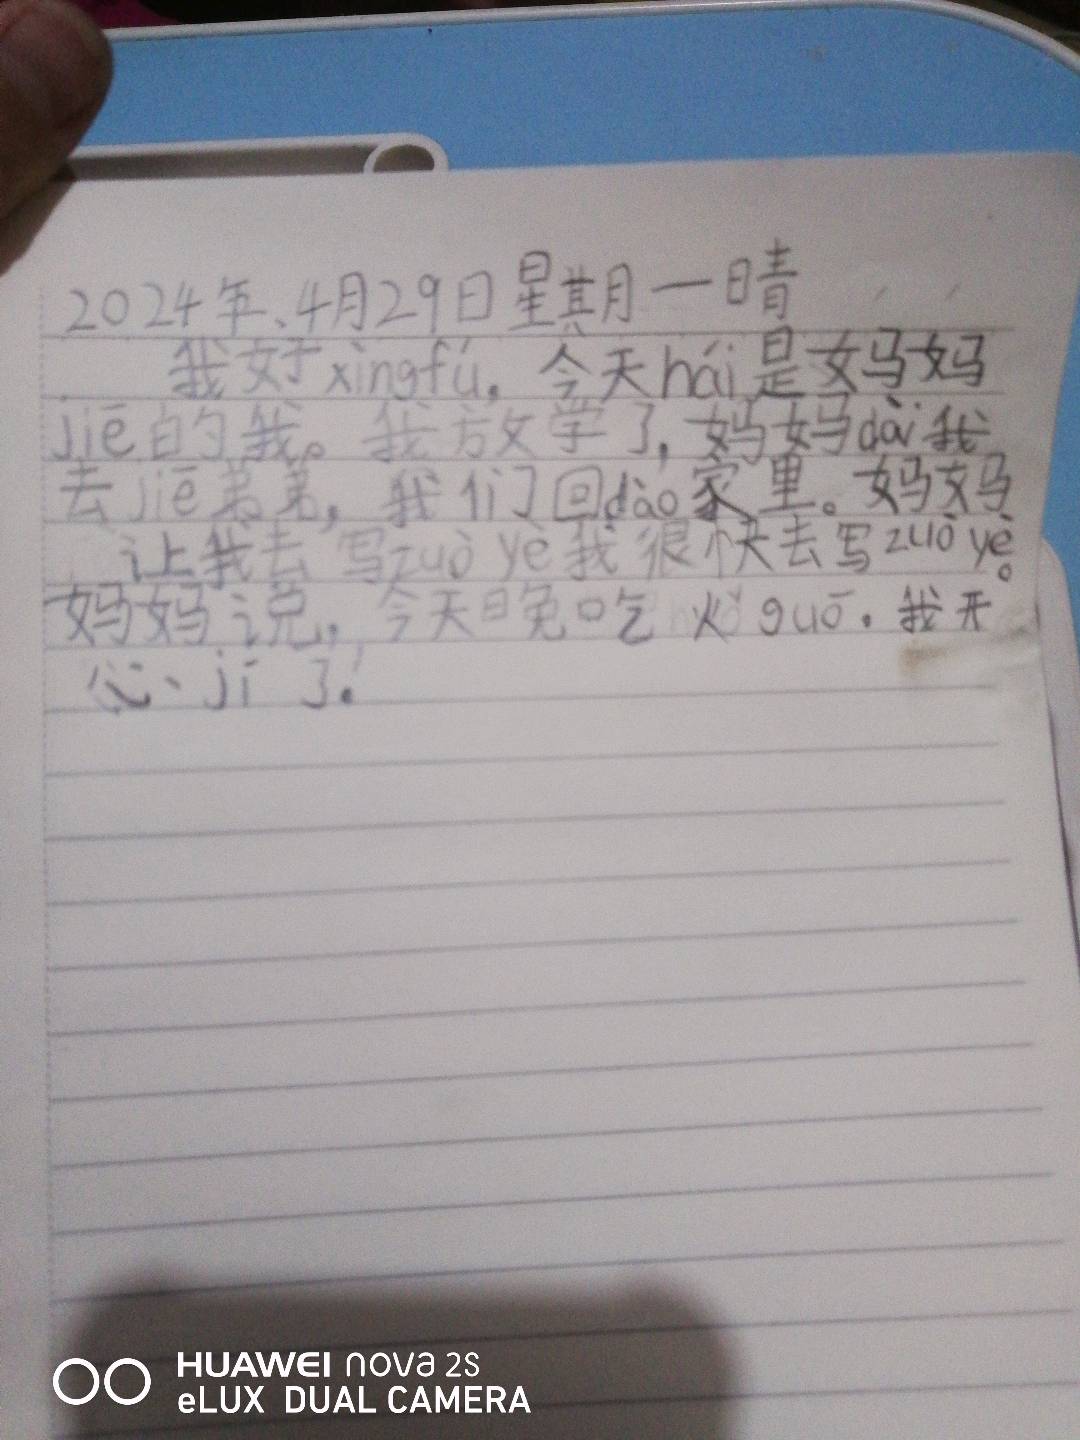 2024年、4月29日星期一晴
我好xìngfú，今天hái是妈妈
jiē的我。我放学了，妈妈dài我
去jiē弟弟，我们回dào家里。妈妈
让我去写zuò yè我很快去写zuò yè。
妈妈说，今天晚吃火guō。我开
心、jí了！
HUAWEI nova 2s
eLUX DUAL CAMERA